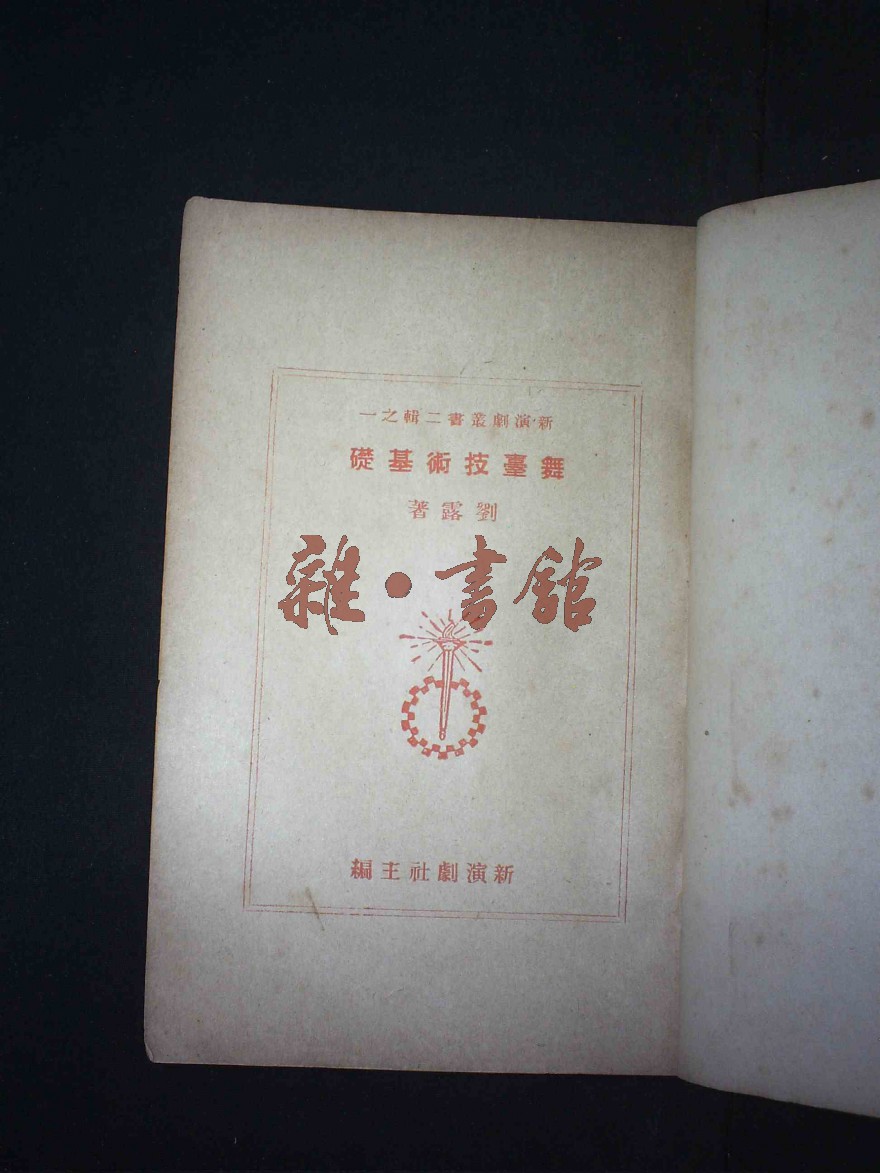 新演劇叢書二輯之一
舞臺技術基礎
劉露著
雜·書館
新演劇社主編